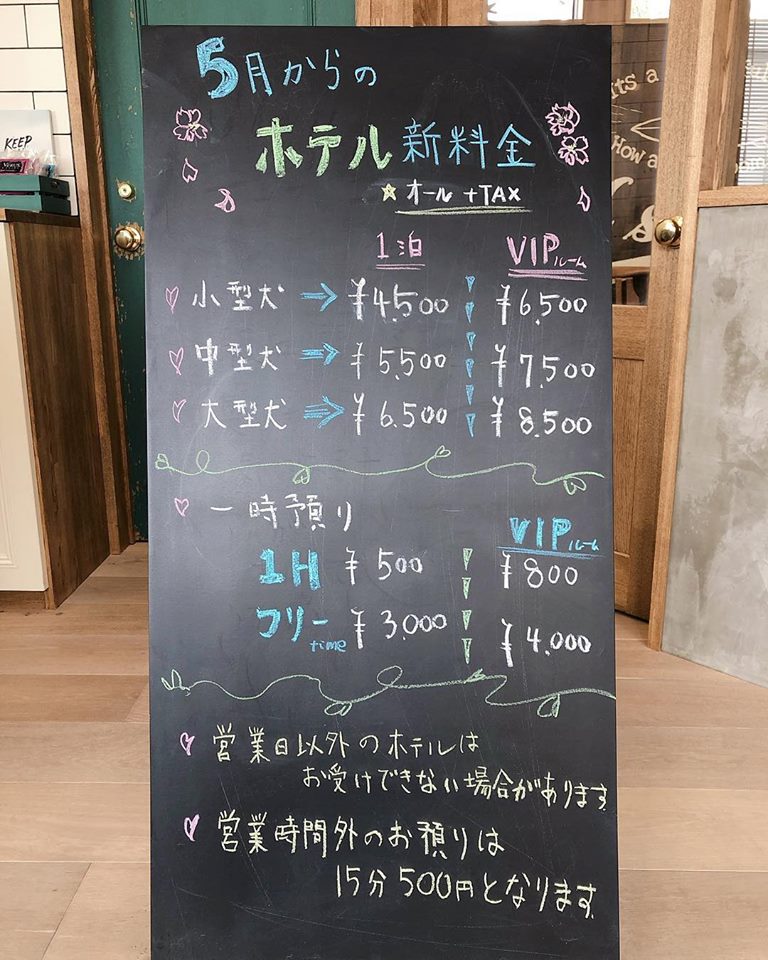 5月からの
ホテル新料金
☆オール +TAX
1泊 VIPルーム
小型犬 → ¥4,500 ¥6,500
中型犬 ⇒ ¥5,500 ¥7,500
大型犬 ⇒ ¥6,500 ¥8,500
一時預り
VIPルーム
1H ¥500 ¥800
フリーtime ¥3,000 ¥4,000
営業日以外のホテルは
お受けできない場合があります
営業時間外のお預りは
15分500円となります
KEEP
its a
How a